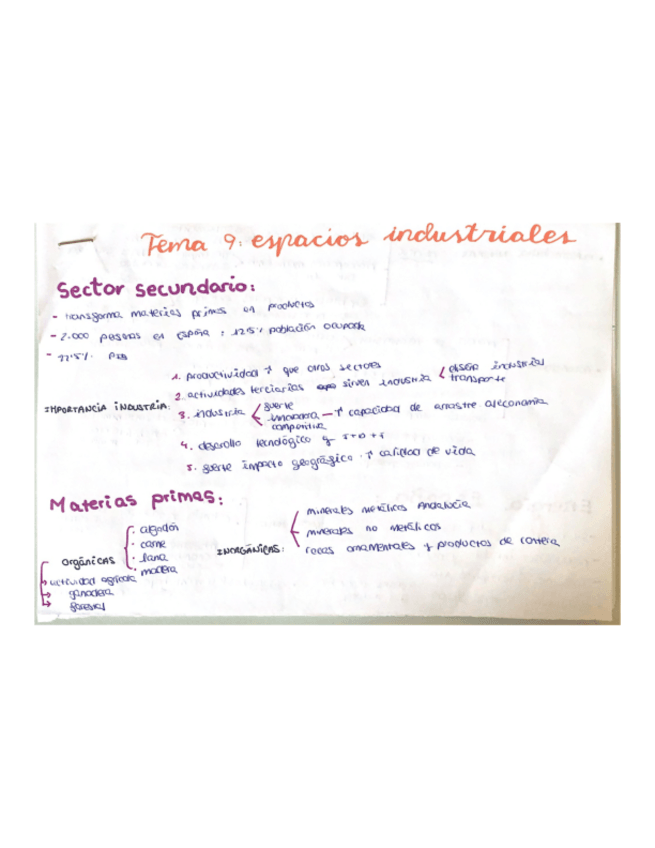 Tema 9: espacios industriales
Sector secundario:
- transforma materias primas en productos
- 2.000 personas en España : 12'5% población ocupada
- 22'5% PIB
IMPORTANCIA INDUSTRIA:
1. productividad ↑ que otros sectores
2. actividades terciarias sirven industria < diseño industrial
transporte
3. industria < fuerte
innovadora → ↑ capacidad de arrastre a/economía
competitiva
4. desarrollo tecnológico y I+D+i
5. fuerte impacto geográfico · ↑ calidad de vida
Materias primas:
orgánicas
· algodón
· carne
· lana
· madera
actividad agrícola
ganadera
forestal
INORGÁNICAS:
minerales metálicos Andalucía
minerales no metálicos
rocas ornamentales y productos de cantera